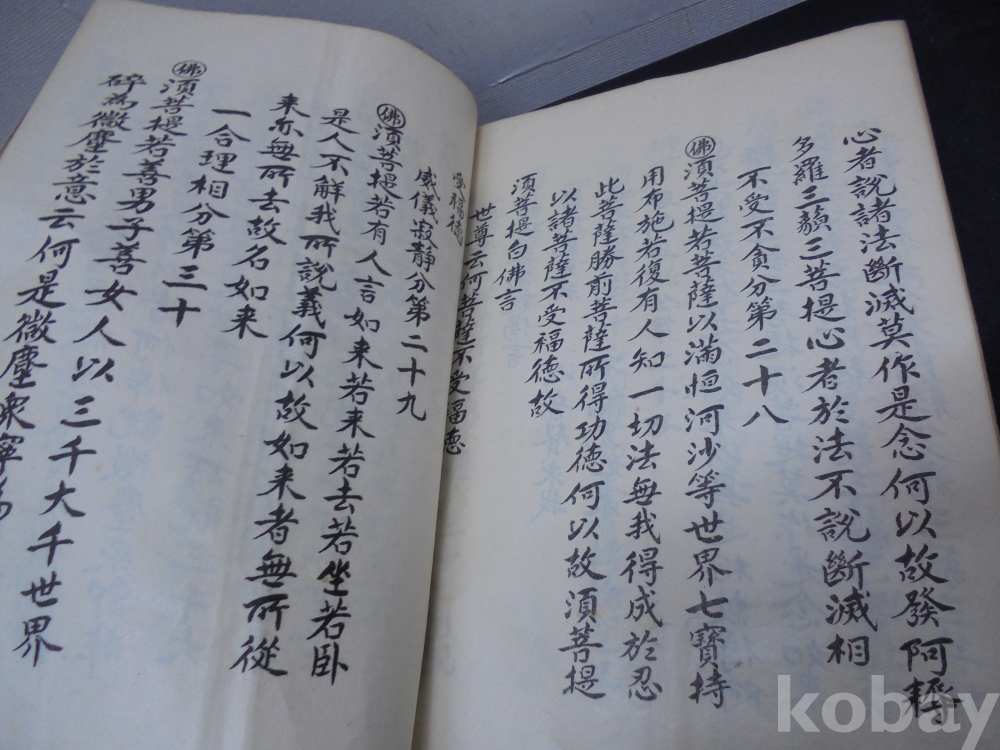 心者說諸法斷滅莫作是念何以故發阿耨
多羅三藐三菩提心者於法不說斷滅相
不受不貪分第二十八
佛須菩提若菩薩以滿恒河沙等世界七寶持
用布施若復有人知一切法無我得成於忍
此菩薩勝前菩薩所得功德何以故須菩提
以諸菩薩不受福德故
須菩提白佛言
世尊云何菩薩不受福德
受福德
威儀寂靜分第二十九
佛須菩提若有人言如来若来若去若坐若臥
是人不解我所說義何以故如来者無所從
来亦無所去故名如来
一合理相分第三十
佛須菩提若善男子善女人以三千大千世界
碎為微塵於意云何是微塵衆寧為
kobay